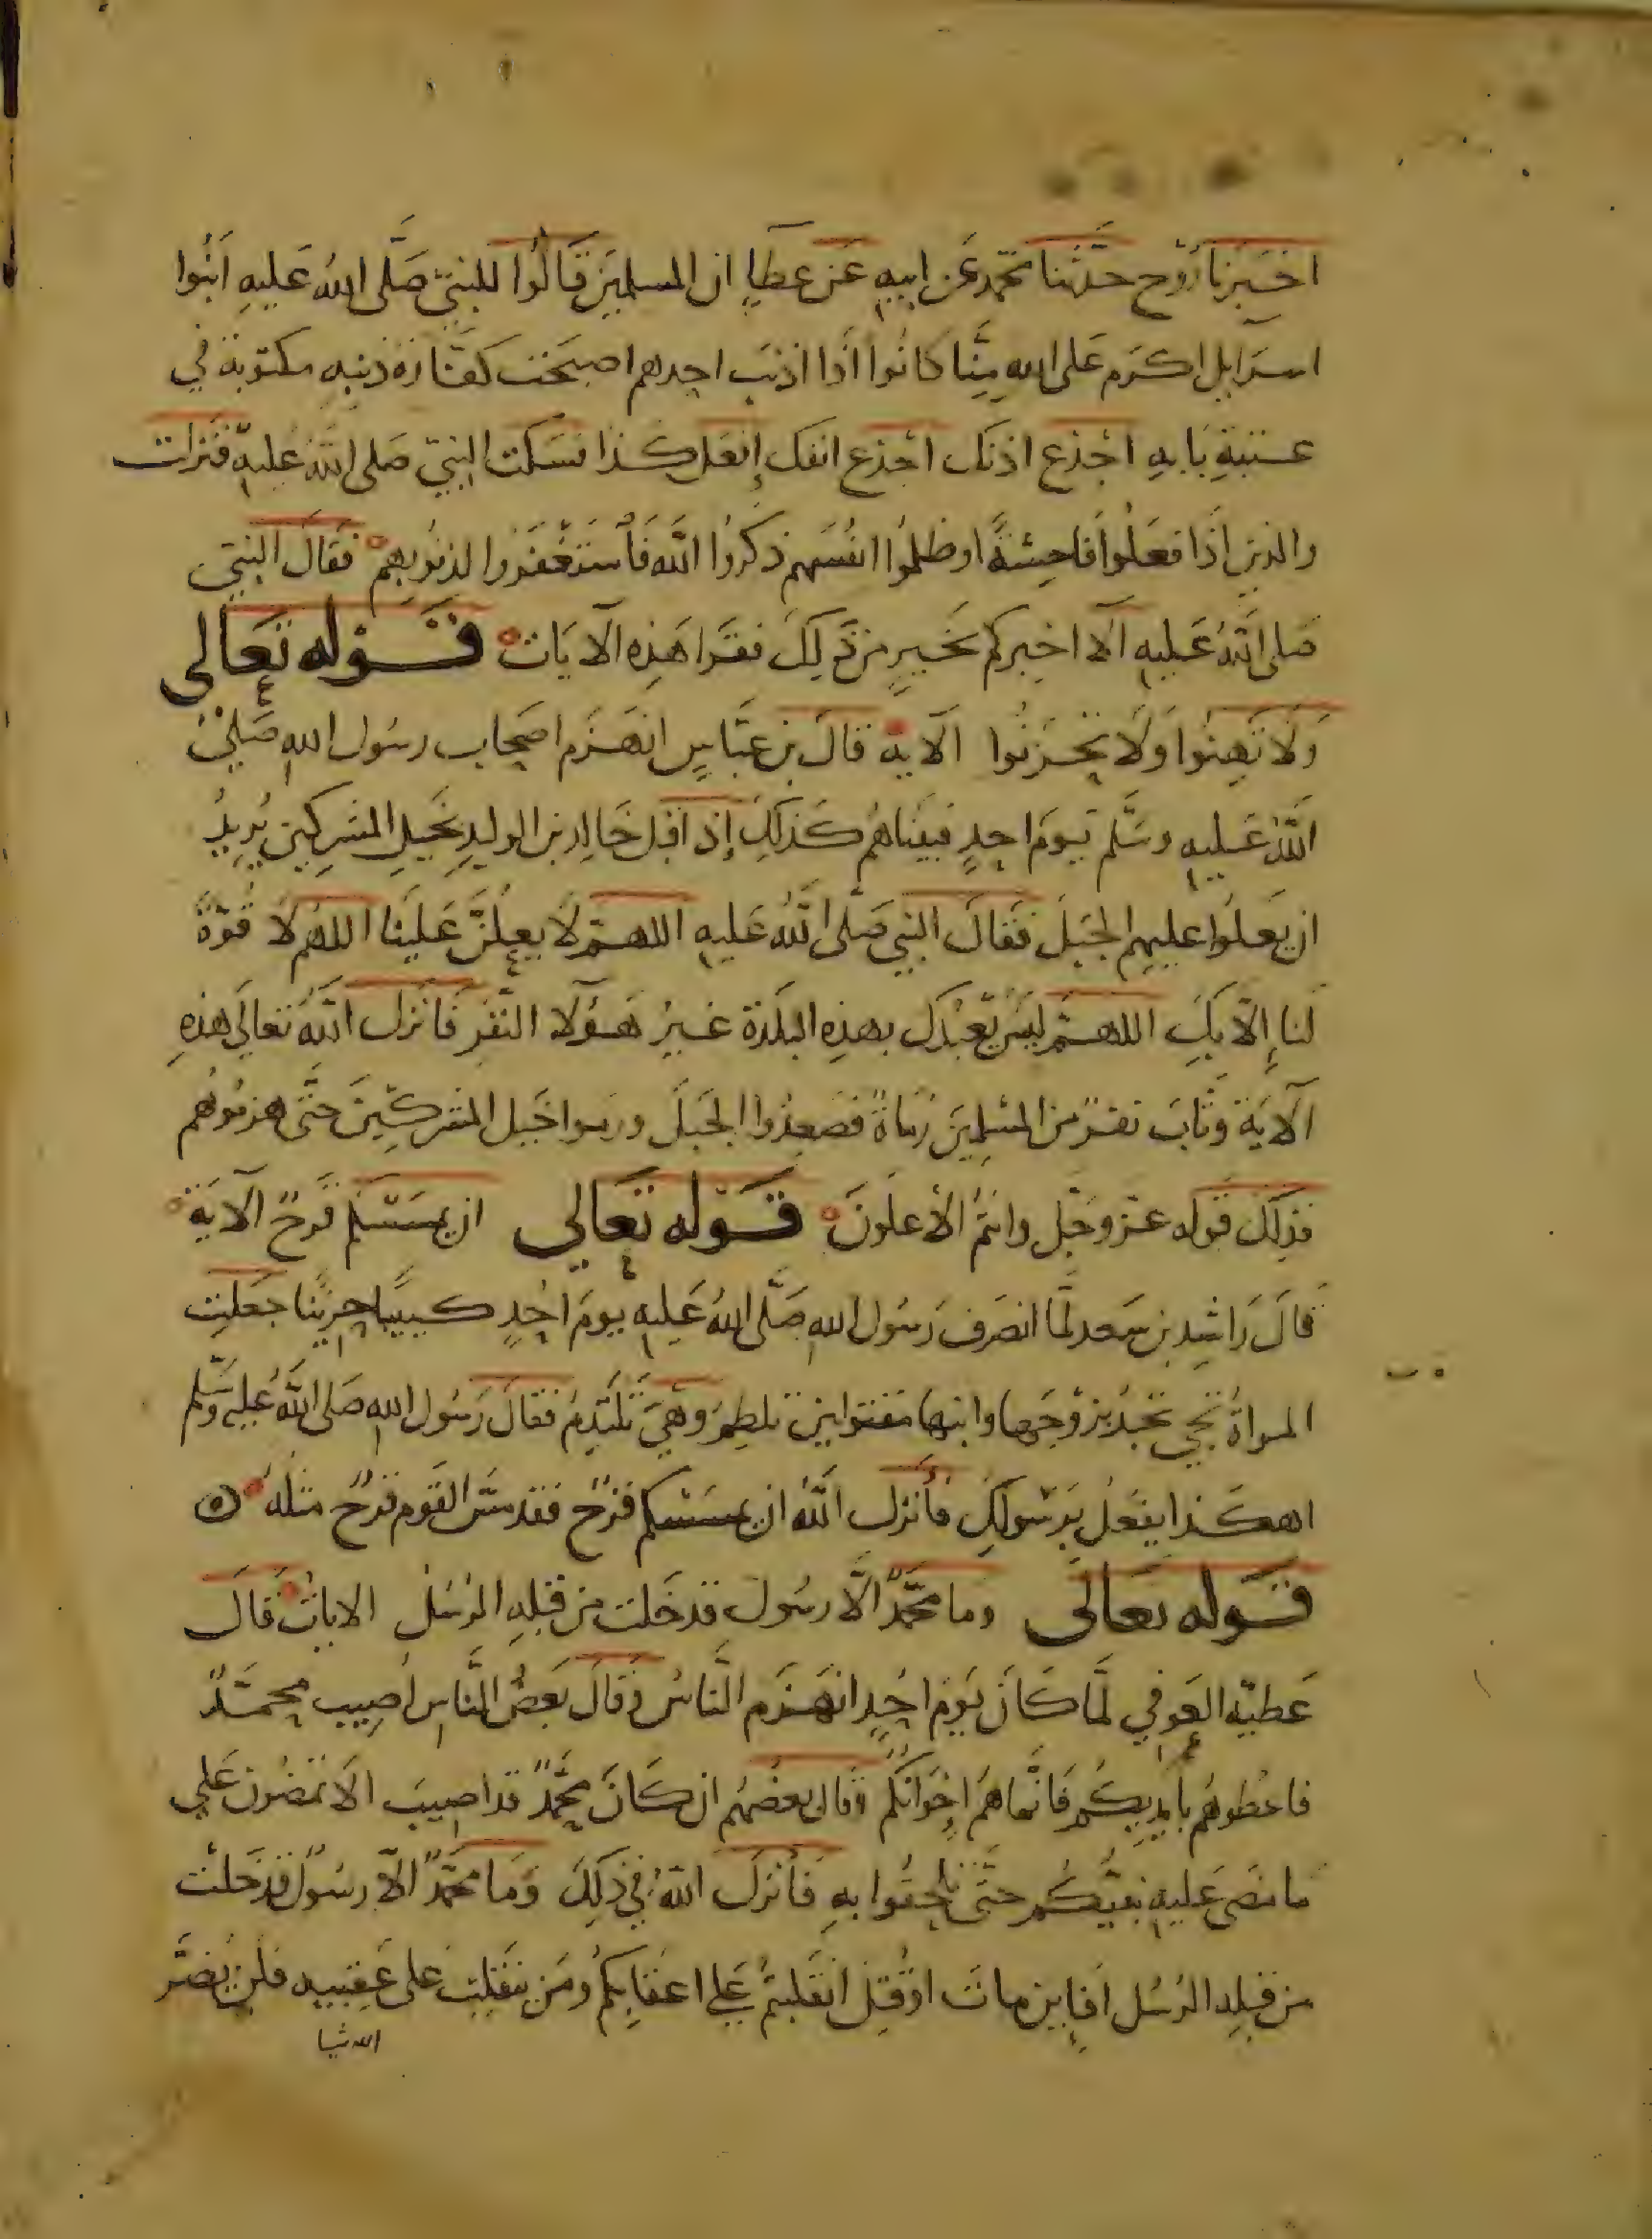 اخبرنا روح حدثنا محمد عن ابيه عن عطاء ان المسلمين قالوا للنبي صلى الله عليه ابنوا
اسرايل اكرم على الله منا كانوا اذا اذنب احدهم اصبحت كفارة ذنبه مكتوبة في
عتبة بابه اجذع اذنك اجذع انفك افعل كذا فسكت النبي صلى الله عليه فنزلت
والذين اذا فعلوا فاحشة او ظلموا انفسهم ذكروا الله فاستغفروا لذنوبهم فقال النبي
صلى الله عليه الا اخبركم بخير من ذلك فقرا هذه الايات قوله تعالى
ولا تهنوا ولا تحزنوا الاية قال بن عباس انهزم اصحاب رسول الله صلى
الله عليه وسلم يوم احد فبيناهم كذلك إذ اقبل خالد بن الوليد بخيل المشركين يريد
ان يعلوا عليهم الجبل فقال النبي صلى الله عليه اللهم لا يعلن علينا اللهم لا قوة
لنا إلا بك اللهم ليس يعبدك بهذه البلدة غير هؤلا النفر فانزل الله تعالى هذه
الاية وثاب نفر من المسلمين رماة فصعدوا الجبل ورموا خيل المشركين حتى هزموهم
فذلك قوله عز وجل وانتم الأعلون قوله تعالى ان يمسسكم قرح الاية
قال راشد بن سعد لما انصرف رسول الله صلى الله عليه يوم احد كييبا حزينا جعلت
المراة تجي بزوجها وابنها مقتولين تلطم وهي تلتدم فقال رسول الله صلى الله عليه وسلم
اهكذا يفعل برسولك فأنزل الله ان يمسسكم قرح فقد مس القوم قرح مثله
قوله تعالى وما محمد الا رسول قد خلت من قبله الرسل الايات قال
عطيه العوفي لما كان يوم احد انهزم الناس فقال بعض الناس اصيب محمد
فاعطوهم بايديكم فانما هم اخوانكم وقال بعضهم ان كان محمد قد اصيب الا تمضون على
ما مضى عليه نبيكم حتى تلحقوا به فأنزل الله في ذلك وما محمد الا رسول قد خلت
من قبله الرسل افاين مات او قتل انقلبتم على اعقابكم ومن ينقلب على عقبيه فلن يضر
الله شيا